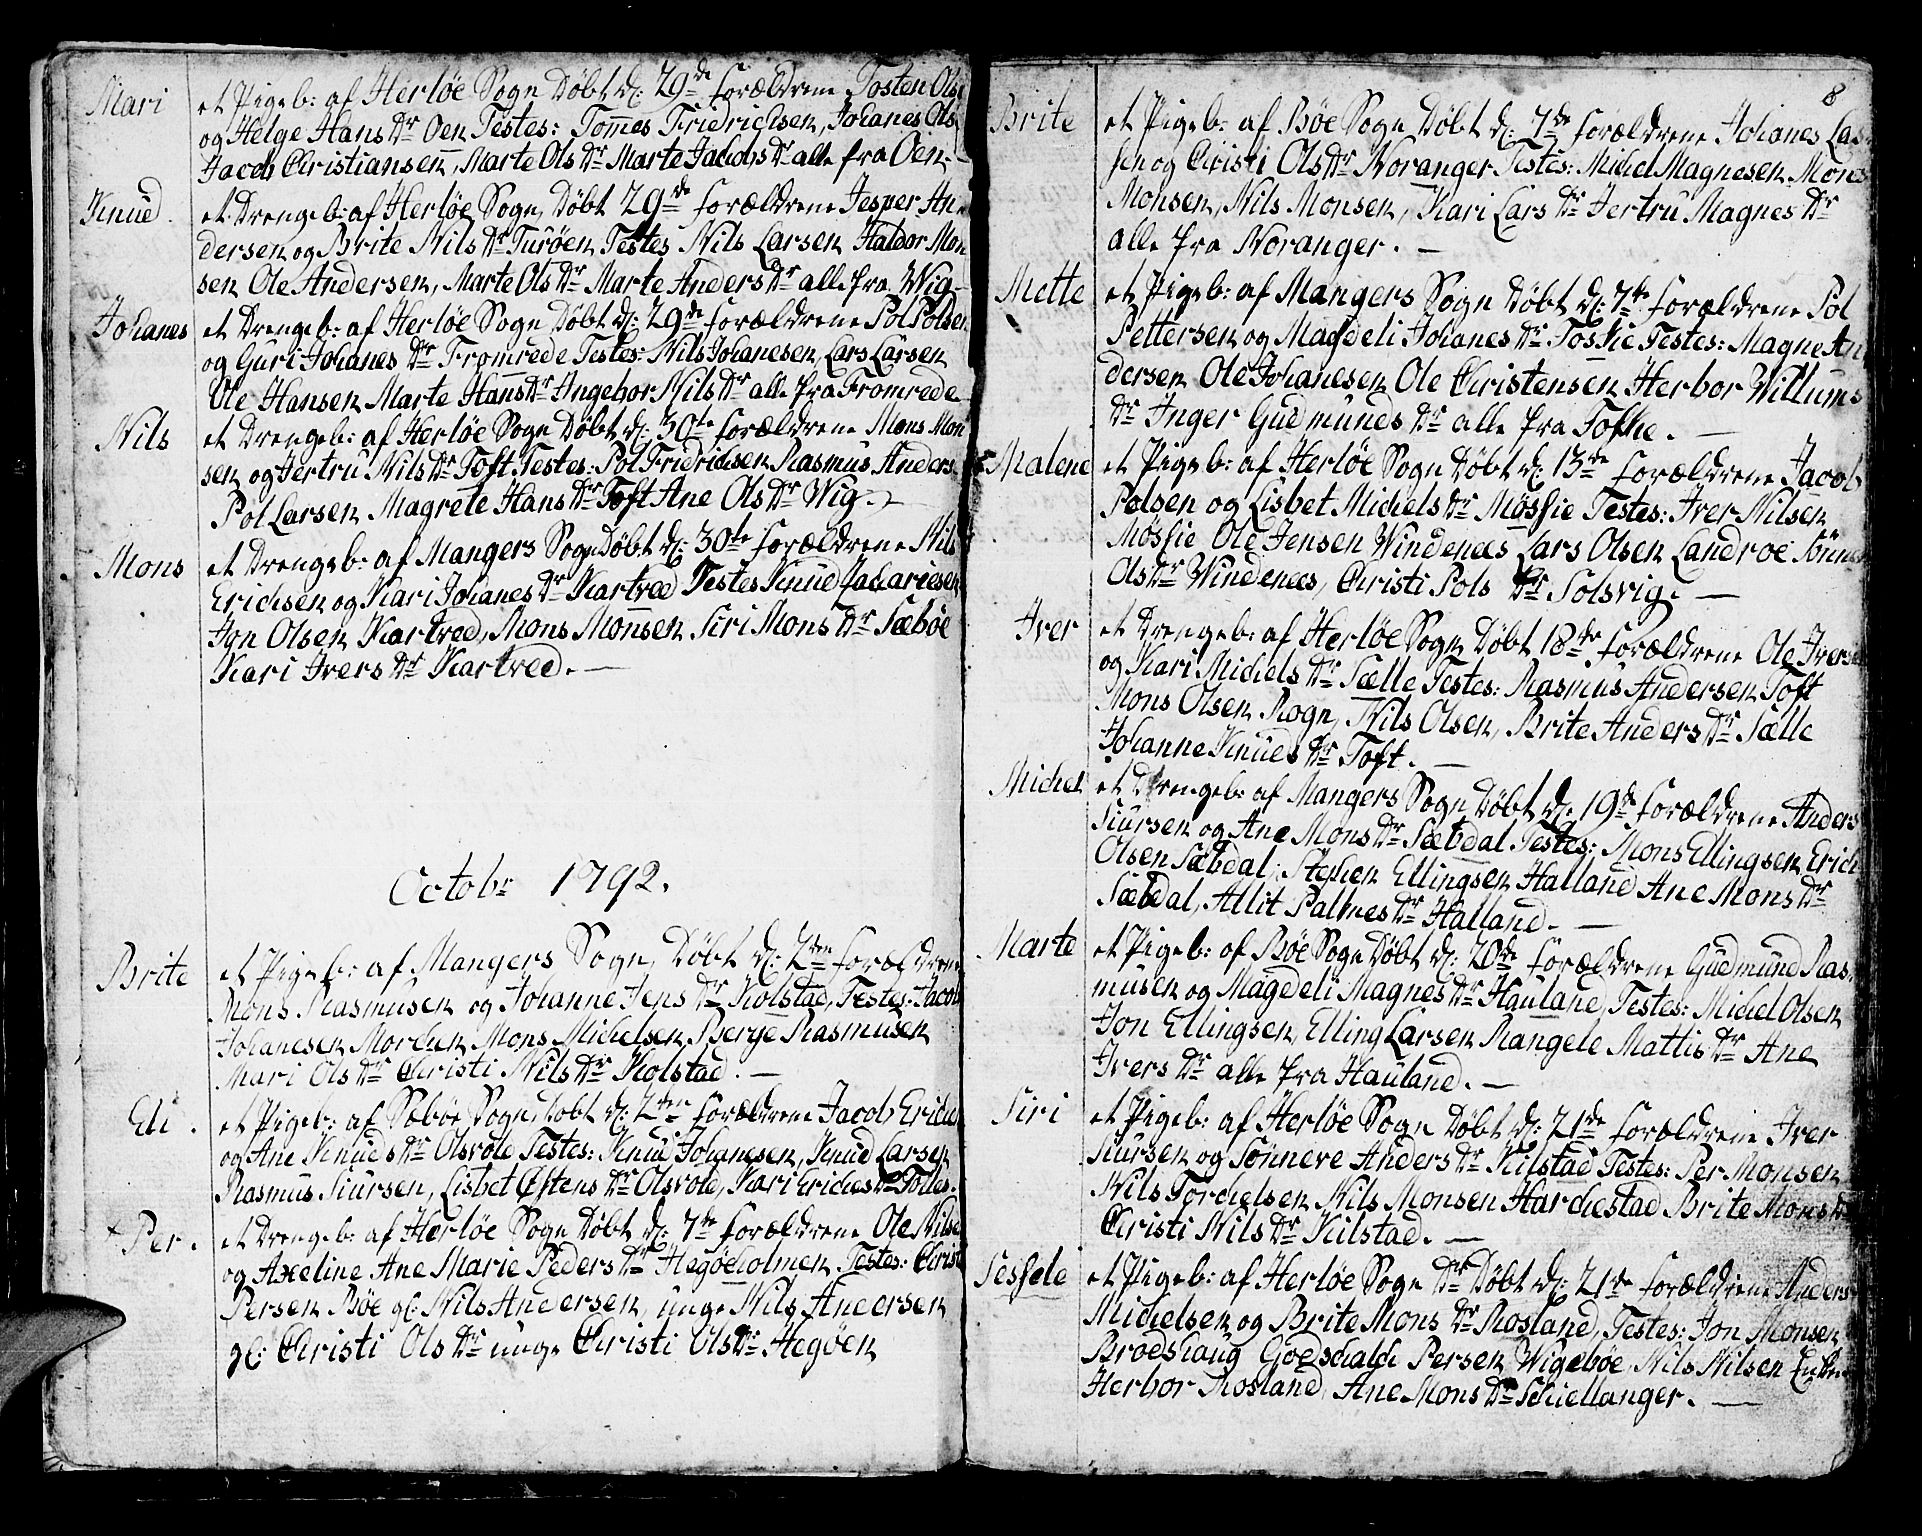 Mari et Pigeb: af Herløe Sogn Døbt d: 29de forældrene Tosten Ols
og Helge Hans Dr Oen Testes: Tomes Fridrichsen, Johanes Ols
Jacob Christiansen, Marte Ols Dr Marte Jacobs Dr alle fra Oen.
Knud. et Drengeb: af Herløe Sogn, Døbt 29de forældrene Jesper An
dersen og Brite Nils Dr Turøen Testes Nils Larsen Haldor Mon
sen Ole Andersen, Marte Ols Dr Marte Anders Dr alle fra Wig
Johanes et Drengeb: af Herløe Sogn Døbt d: 29de forældrene Pol Polsen
og Guri Johanes Dr Fromrede Testes: Nils Johanesen, Lars Larsen
Ole Hansen Marte Hans Dr Ingebor Nils Dr alle fra Fromrede
Nils et Drengeb: af Herløe Sogn Døbt d: 30te forældrene Mons Mon
sen og Jertru Nils Dr Toft Testes: Pol Fridrichsen Rasmus Anders.
Pol Larsen Magrete Hans Dr Toft Ane Ols Dr Wig.
Mons et Drengeb: af Mangers Sogn Døbt d: 30te forældrene Nils
Erichsen og Kari Johanes Dr Kartved Testes Knud Zachariesen
Jon Olsen Kartved, Mons Monsen Siri Mons Dr Sæbøe
Kari Ivers Dr Kartved. —
Octobr 1792.
Brite et Pigeb: af Mangers Sogn, Døbt d: 2den forældrene
Mons Rasmusen og Johanne Jens Dr Kolstad, Testes: Jacob
Johanesen Mons Michelsen Berge Rasmusen
Mari Ols Dr Christi Nils Dr Kolstad. —
Eli. et Pigeb: af Sæbøe Sogn Døbt d: 2den forældrene Jacob Erichs
og Ane Knuds Dr Olsvold Testes: Knud Johanesen, Knud Larsen
Rasmus Siursen, Lisbet Østens Dr Olsvold, Kari Erichs Dr
+ Per. et Drengeb: af Herløe Sogn Døbt d: 7de forældrene Ole Nilse
og Axeline Ane Marie Peders Dr Hegøeholmen Testes: Christ
Persen Bøe gl: Nils Andersen, unge Nils Andersen
gl: Christi Ols Dr unge Christi Ols Dr Hegøen
8
Brite et Pigeb: af Bøe Sogn Døbt d: 7de forældrene Johanes Lar
sen og Christi Ols Dr Noranger Testes: Michel Magnesen Mons
Monsen, Nils Monsen, Kari Lars Dr Jertru Magnes Dr
alle fra Noranger. —
Mette et Pigeb: af Mangers Sogn Døbt d: 7de forældrene Pol
Pettersen og Magdeli Johanes Dr Toskie Testes: Magne An
dersen Ole Johanesen Ole Christensen Herbor Willums
Dr Inger Gudmunds Dr alle fra Toskie. —
Malene et Pigeb: af Herløe Sogn Døbt d: 13de forældrene Jacob
Polsen og Lisbet Michels Dr Møssie Testes: Iver Nilsen
Møssie Ole Jensen Windenees Lars Olsen Landroe Sønnev
Ols Dr Windenees, Christi Pols Dr Solsvig. —
Iver et Drengeb: af Herløe Sogn Døbt 18de forældrene Ole Iverse
og Kari Michels Dr Sælle Testes: Rasmus Andersen Toft
Mons Olsen Rogn, Nils Olsen, Brite Anders Dr Sælle
Johanne Knuds Dr Toft. —
Michel et Drengeb: af Mangers Sogn, Døbt d: 19de forældrene Anders
Siursen og Ane Mons Dr Sæbdal Testes: Mons Ellingsen Erich
Olsen Sæbdal, Stephen Ellingsen Halland Ane Mons Dr
Sæbdal, Allit Palmes Dr Halland. —
Marte et Pigeb: af Bøe Sogn Døbt d: 20de forældrene Gudmund Ras
musen og Magdeli Magnes Dr Hauland, Testes: Michel Olsen
Jon Ellingsen, Elling Larsen Rangele Mattis Dr Ane
Ivers Dr alle fra Hauland. —
Siri et Pigeb: af Herløe Sogn Døbt d: 21de forældrene Iver
Siursen og Sønneve Anders Dr Kilstad Testes: Per Monsen
Nils Torchelsen Nils Monsen Harchestad Brite Mons Dr
Christi Nils Dr Kilstad. —
Sessele et Pigeb: af Herløe Sogn Dr Døbt d: 21de forældrene Anders
Michelsen og Brite Mons Dr Rosland, Testes: Jon Monsen
Bredshaug Goedschalch Persen Wigebøe, Nils Nilsen Enken
Herbor Rosland, Ane Mons Dr Schiellanger. —